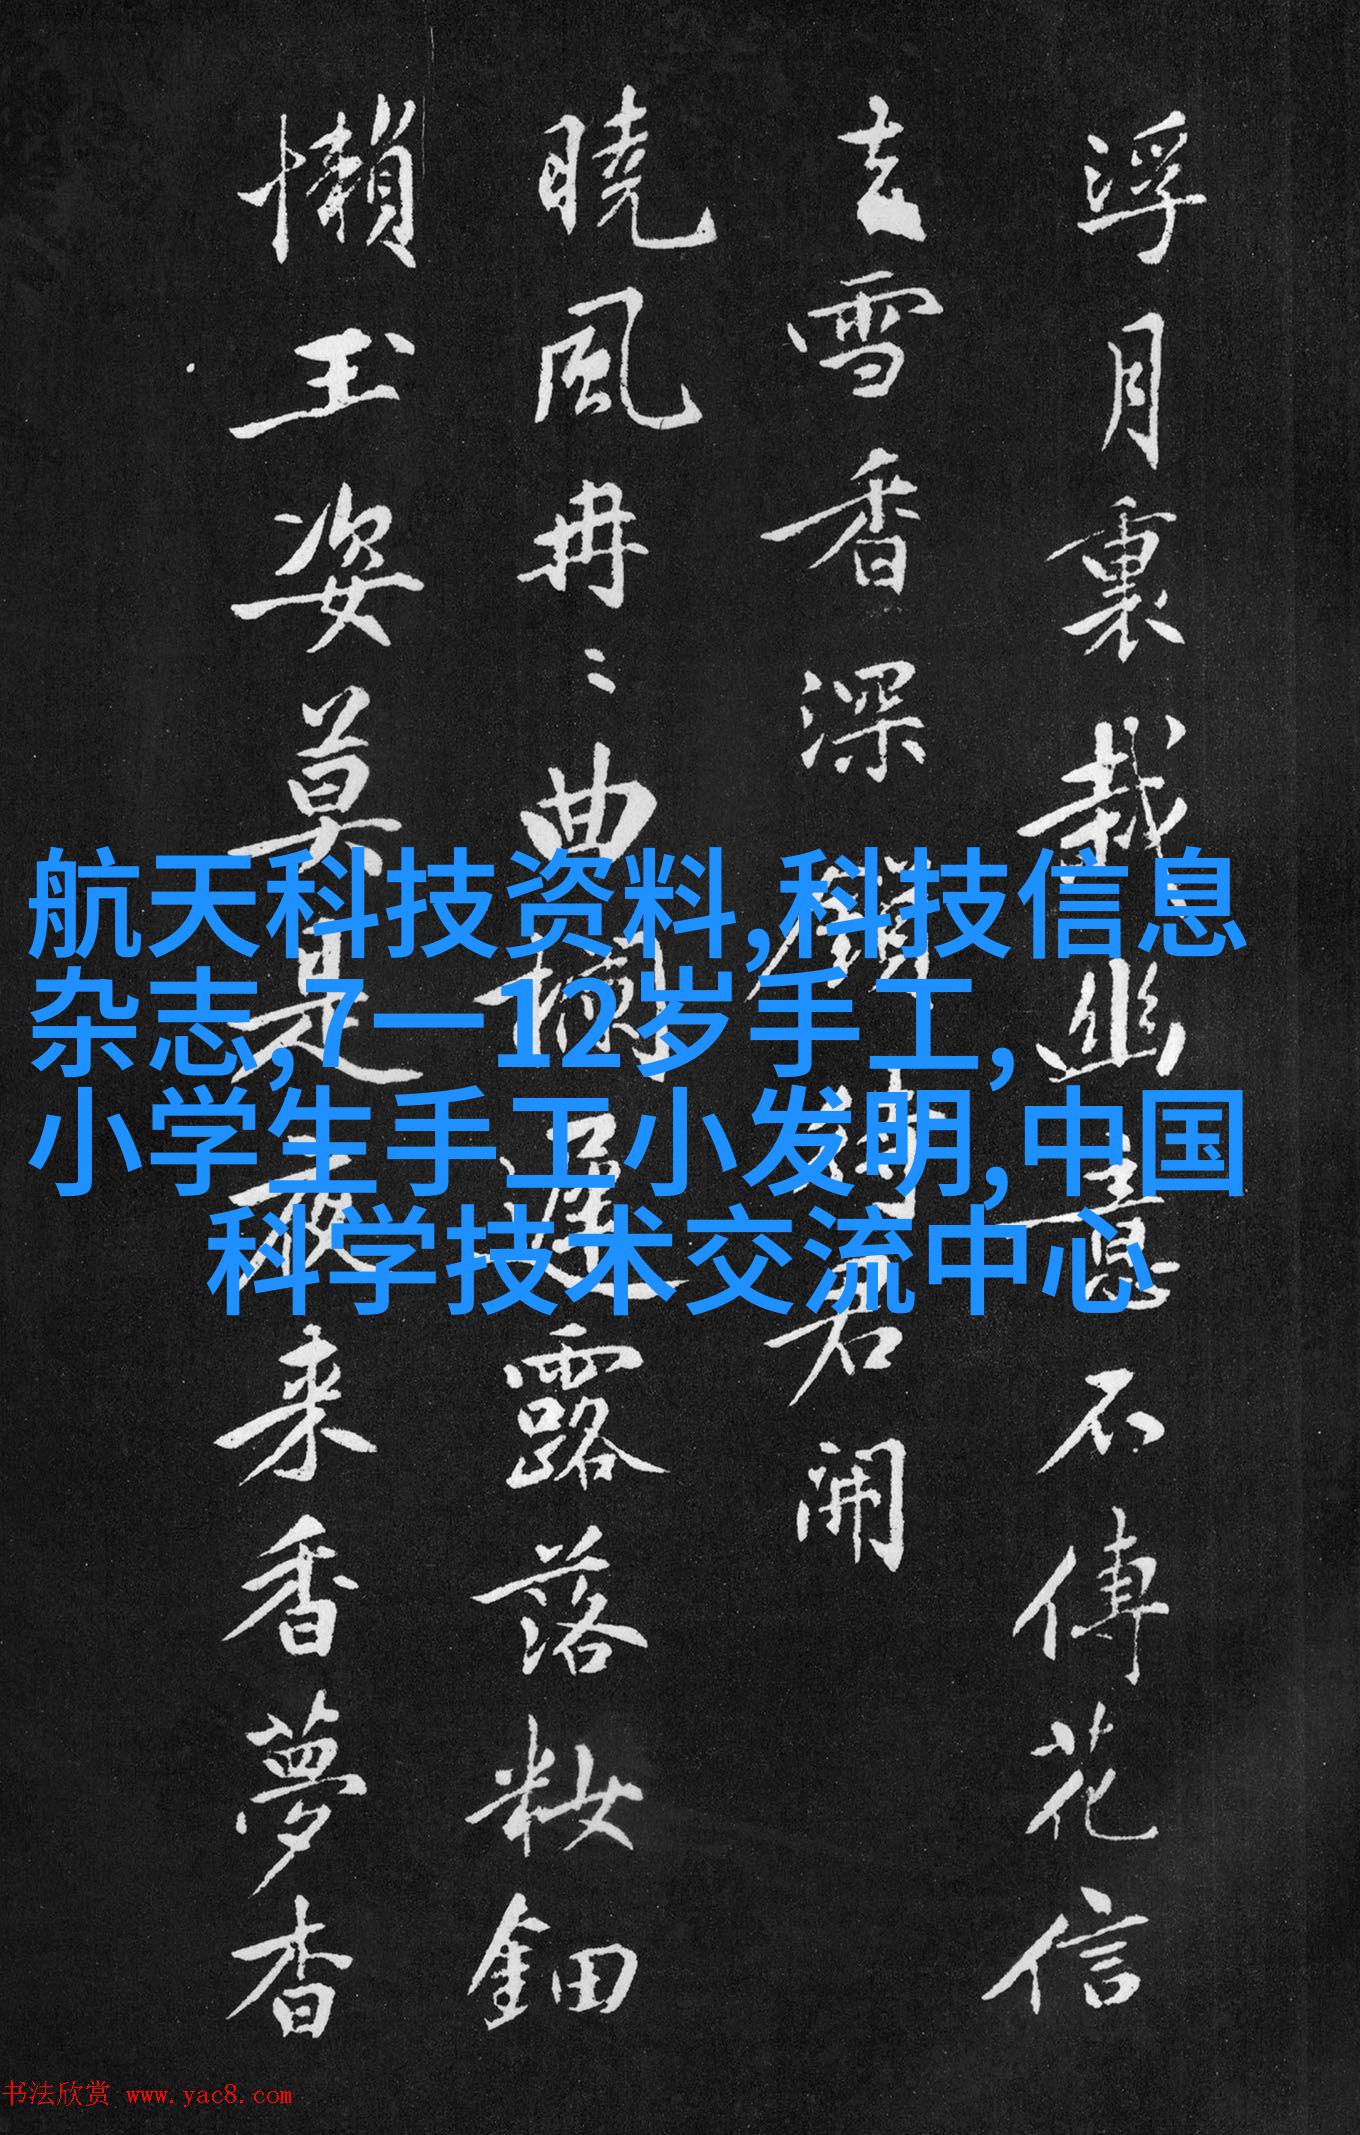 浮月裏栽幽意不傳花信
玄雪香深鎖待君開
曉風冉〻曲欄遲露落粧鈿
懶玉姿莫是夜来香夢杳
航天科技资料,科技信息
杂志,7一12岁手工,
小学生手工小发明,中国
科学技术交流中心
书法欣赏 www.yac8.com